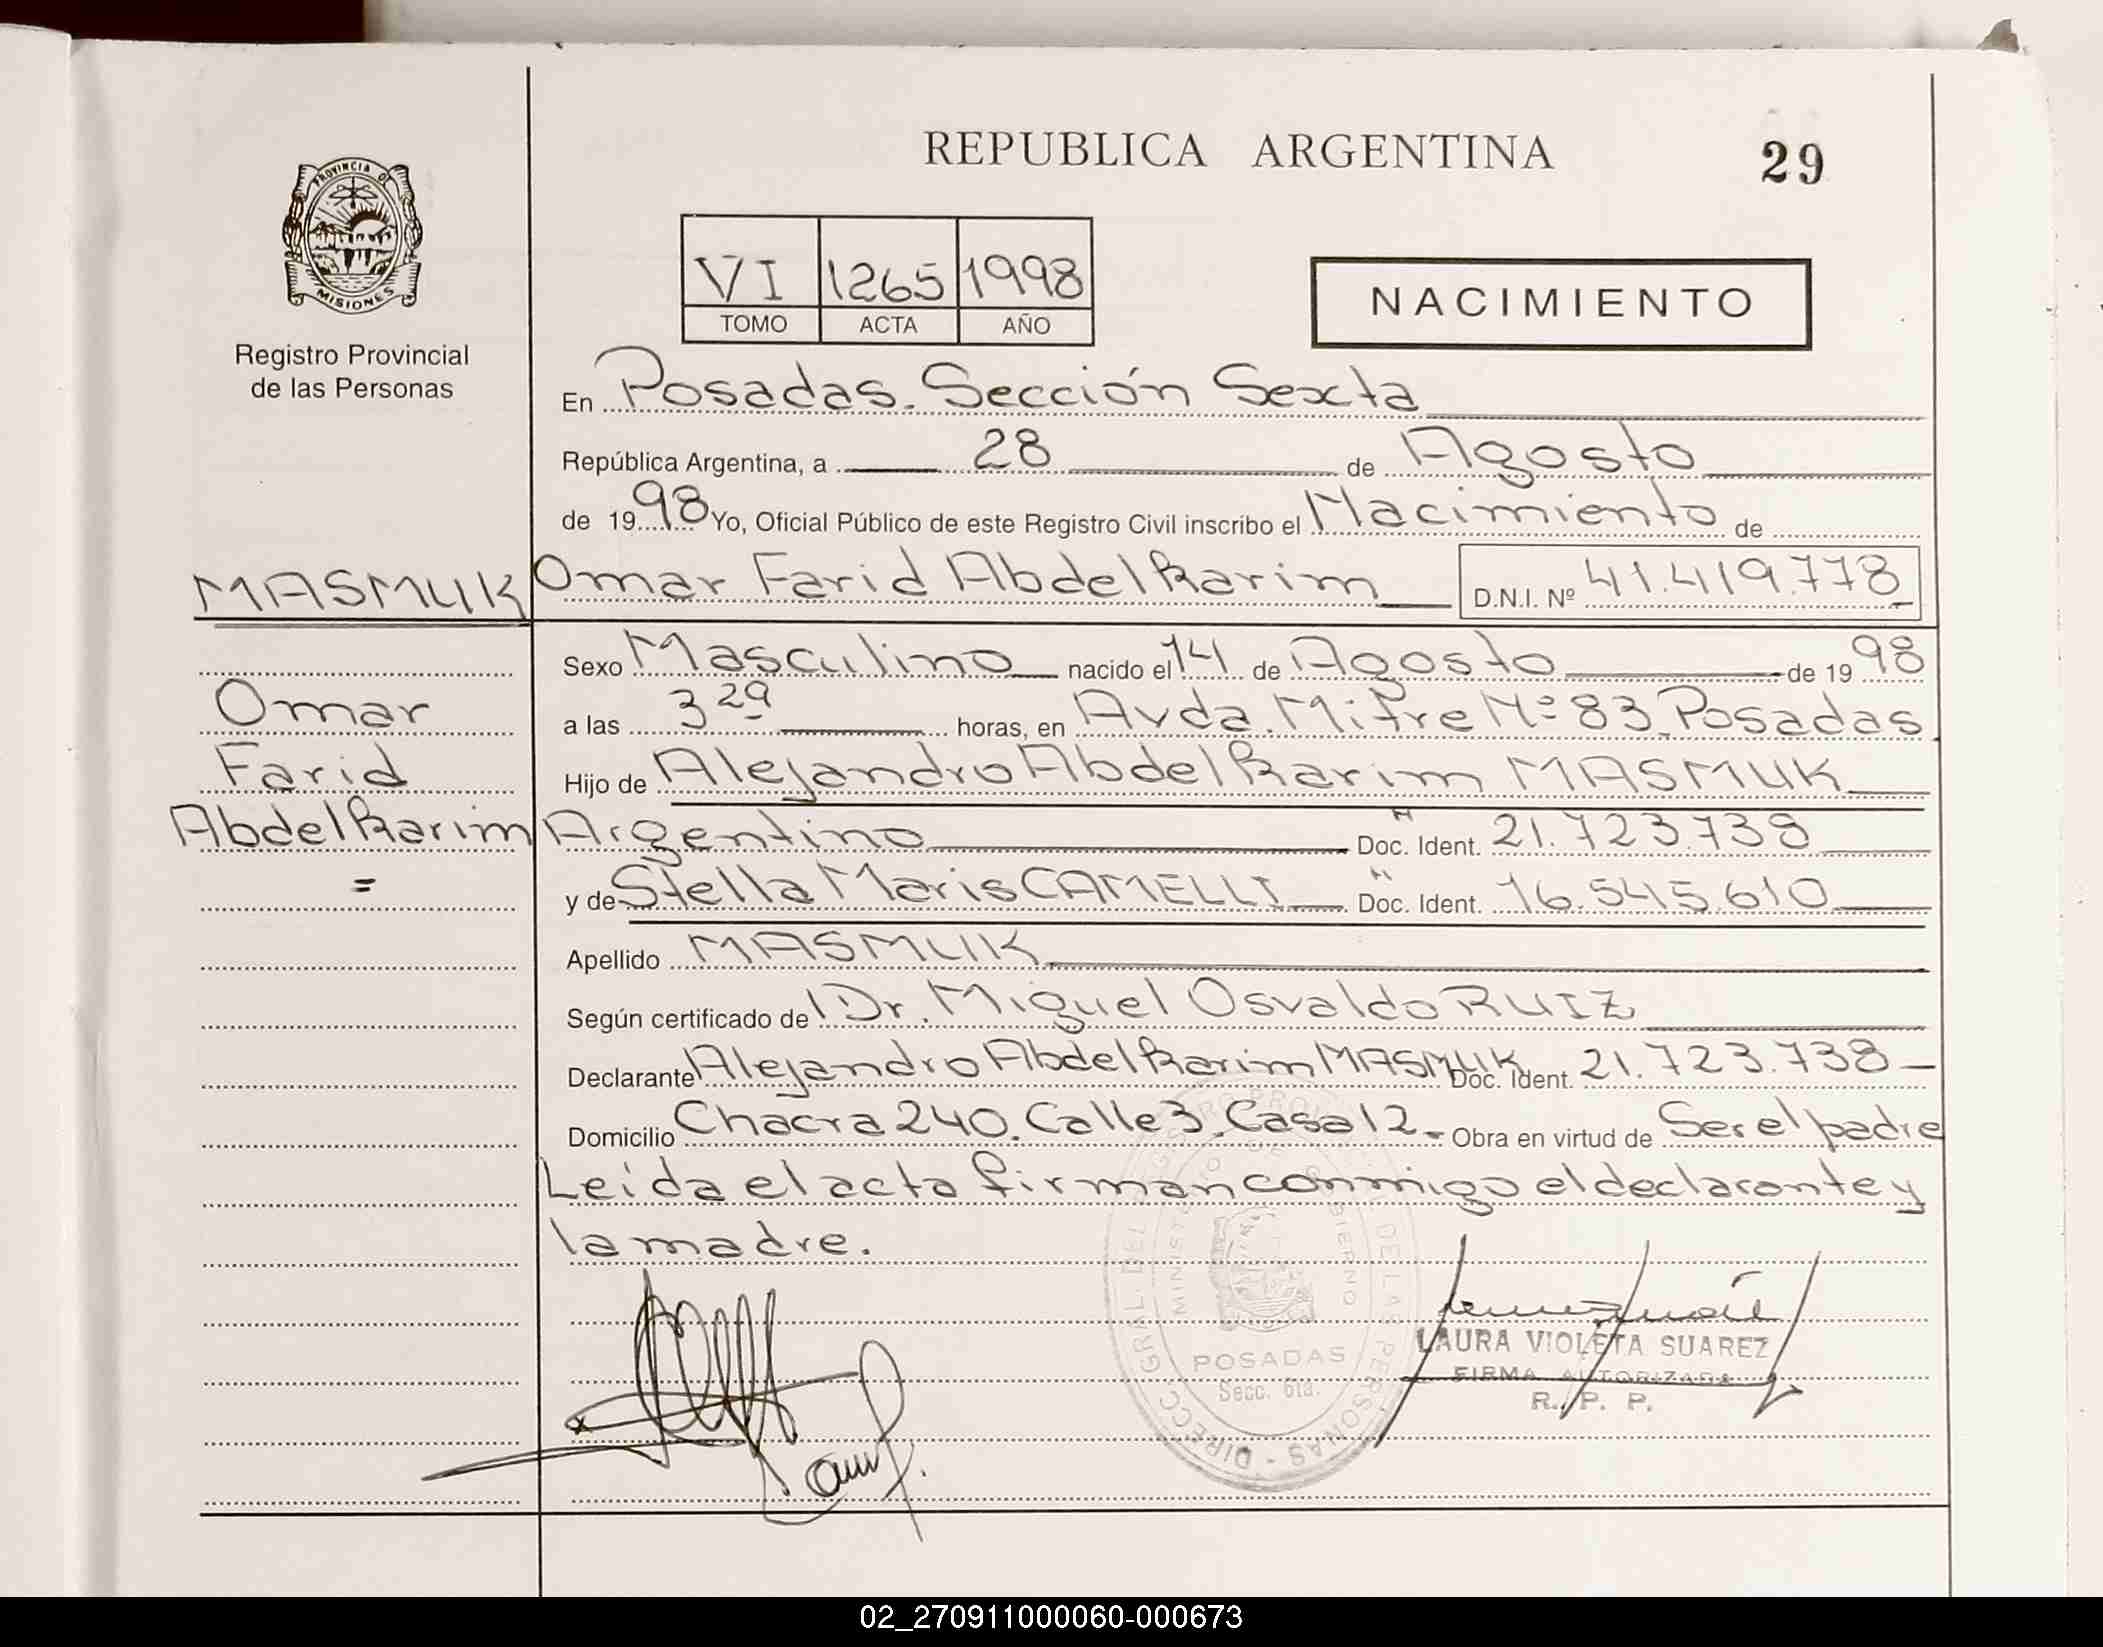 REPUBLICA ARGENTINA
29
PROVINCIA DE
MISIONES
Registro Provincial
de las Personas
VI 1265 1998
TOMO ACTA AÑO
NACIMIENTO
En Posadas. Sección Sexta
República Argentina, a 28 de Agosto
de 1998 Yo, Oficial Público de este Registro Civil inscribo el Nacimiento de
MASMUK Omar Farid Abdelkarim D.N.I. Nº 41.419.778
Sexo Masculino nacido el 14 de Agosto de 1998
Omar
Farid
Abdelkarim
=
a las 3 29 horas, en Avda. Mitre Nº 83. Posadas
Hijo de Alejandro Abdelkarim MASMUK
Argentino Doc. Ident. 21.723.738
y de Stella Maris CAMELLI Doc. Ident. 16.545.610
Apellido MASMUK
Según certificado de Dr. Miguel Osvaldo RUIZ
Declarante Alejandro Abdelkarim MASMUK Doc. Ident. 21.723.738
Domicilio Chacra 240. Calle 3. Casa 12. Obra en virtud de Ser el padre
Leída el acta firman conmigo el declarante y
la madre.
DIRECC. GRAL. DEL REGISTRO PROVINCIAL DE LAS PERSONAS
MINISTERIO DE GOBIERNO
POSADAS
Secc. 6ta.
LAURA VIOLETA SUAREZ
FIRMA AUTORIZADA
R. P. P.
02_270911000060-000673